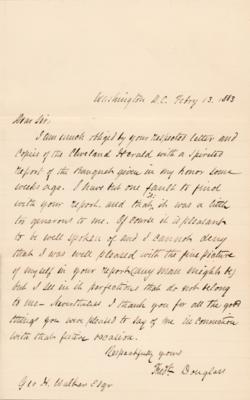 Washington D.C. Febry 13. 1883
Dear Sir:
I am much obliged by your respected letter and
copies of the Cleveland Herald with a spirited
report of the Banquet given in my honor some
weeks ago. I have but one fault to find
with your report and that is it was a little
too generous to me. Of course it is pleasant
to be well spoken of and I cannot deny
that I was well pleased with the fine picture
of myself in your report (any man might be)
but I see in it perfections that do not belong
to me - Nevertheless I thank you for all the good
things you were pleased to say of me in connection
with that occasion.
Respectfully yours
Fredk Douglass
Geo H. Walker Esqr